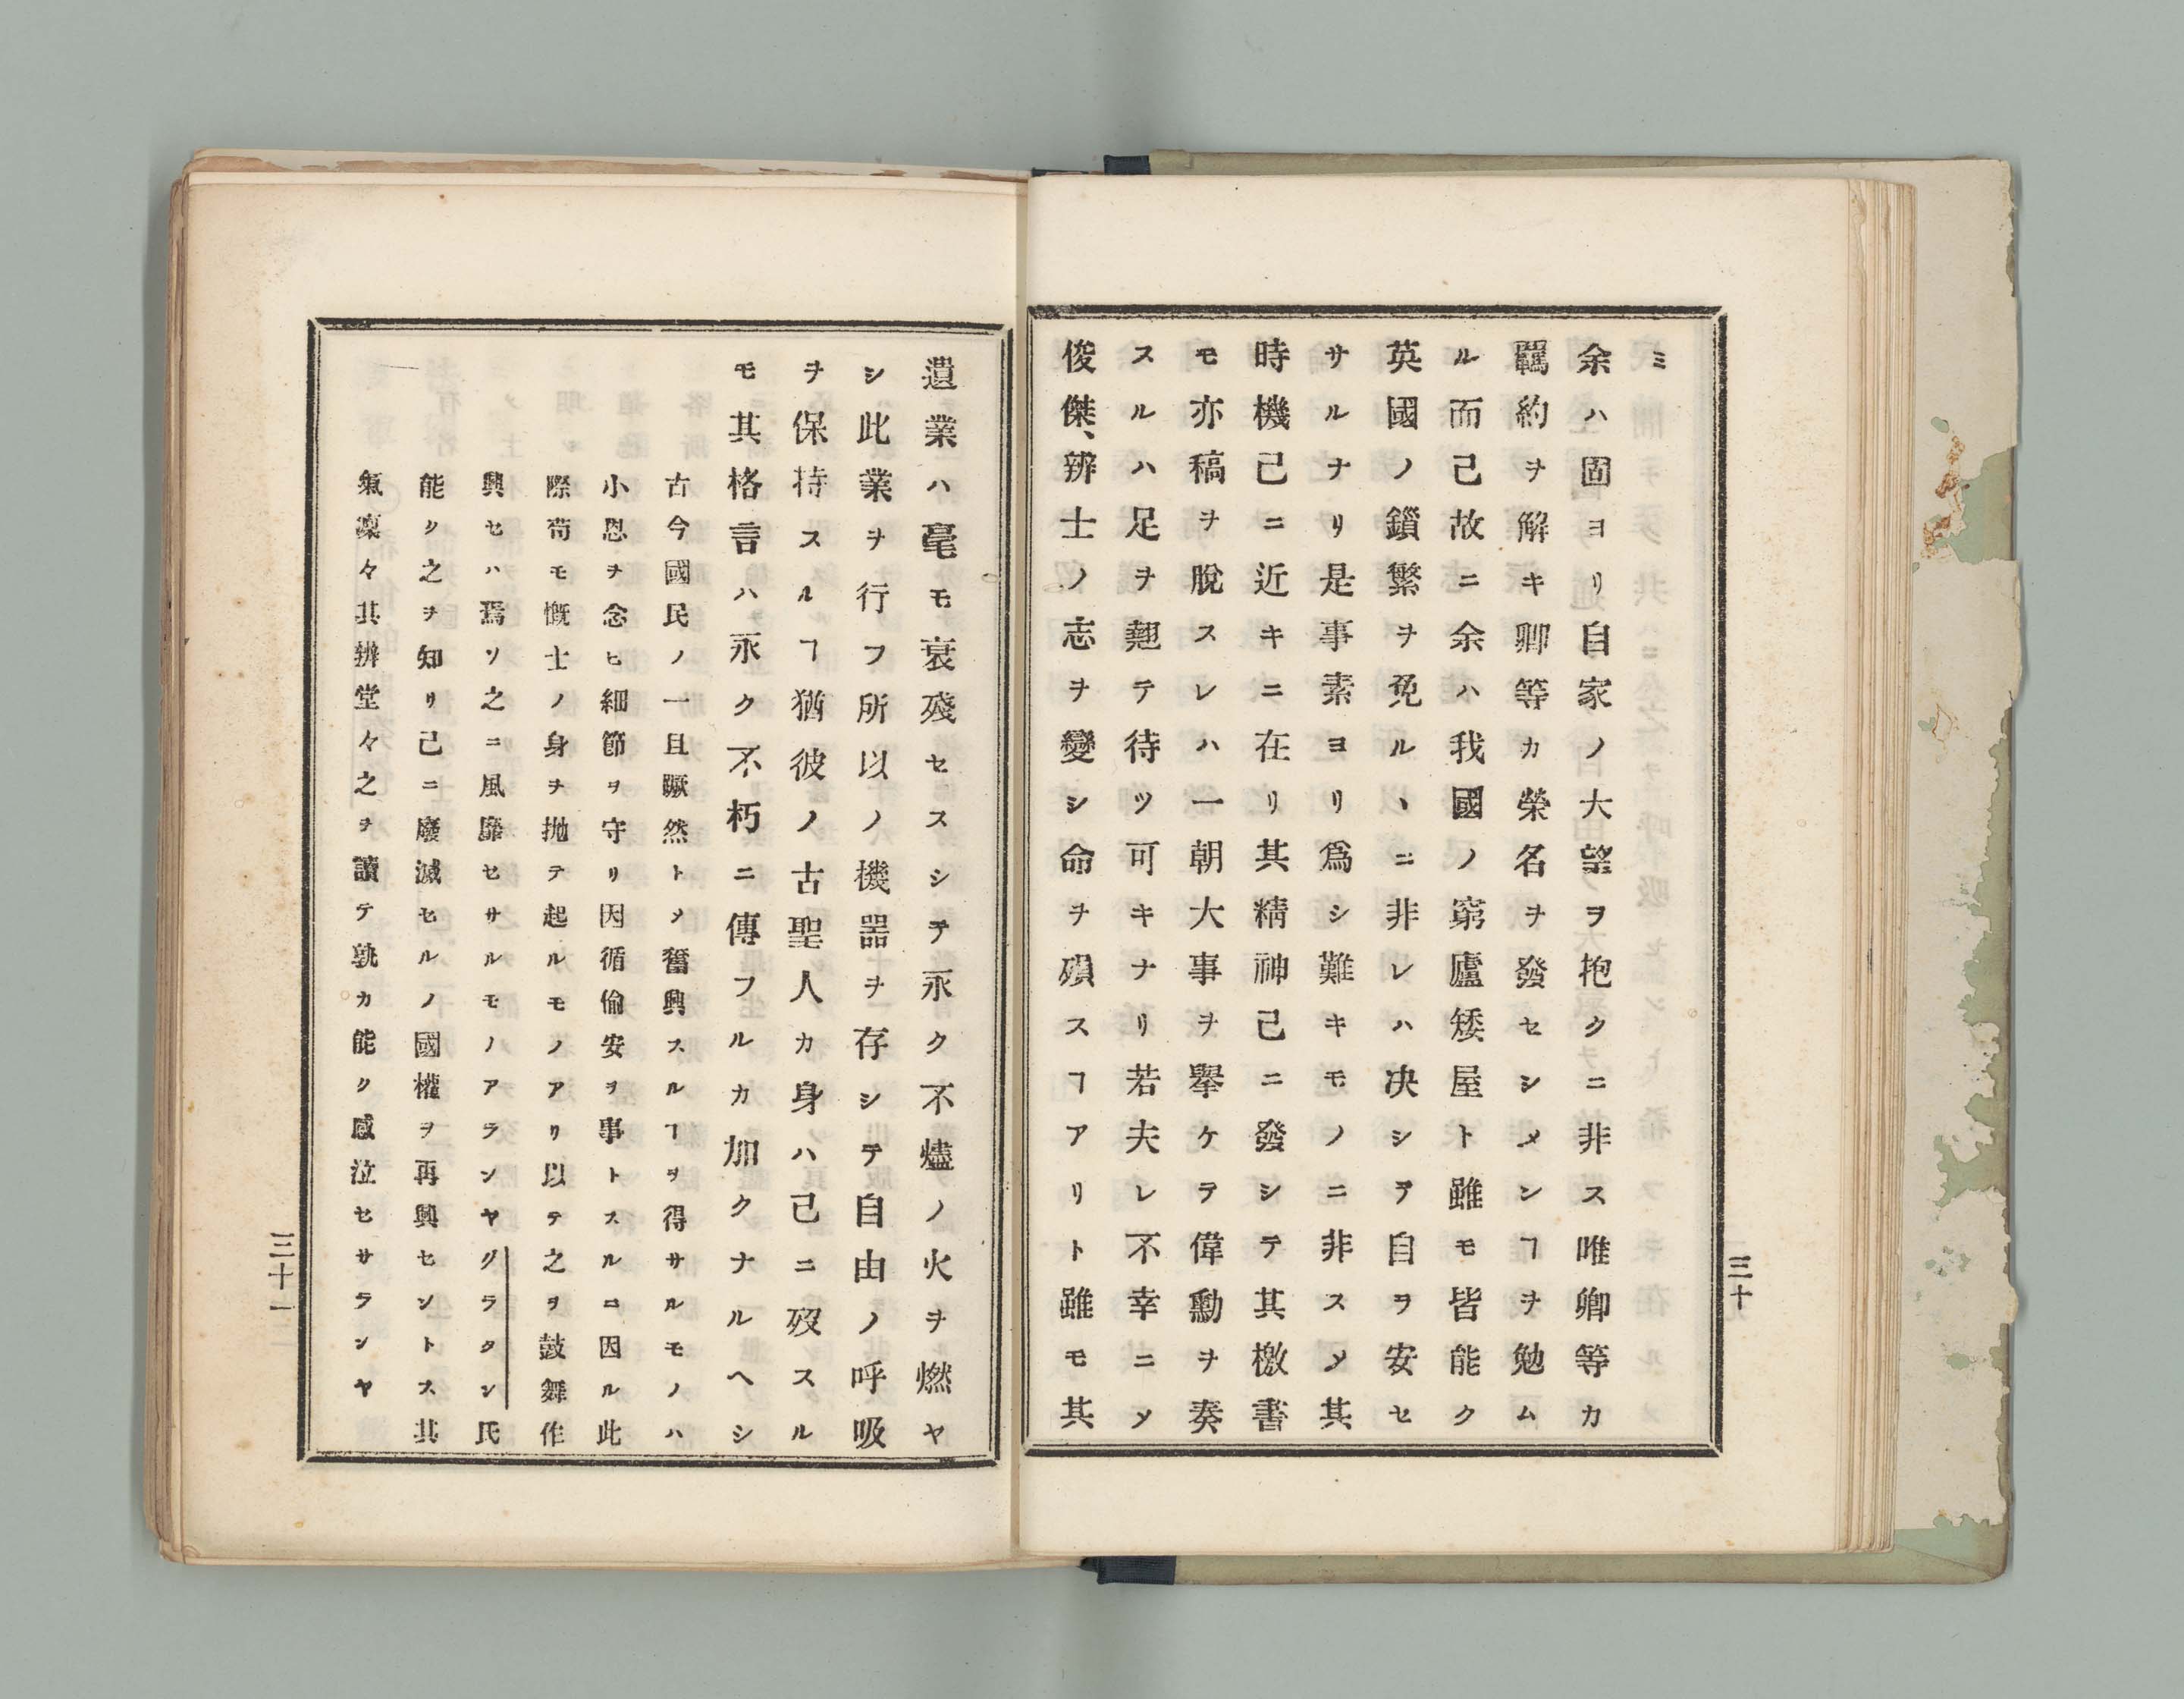 ミ
余ハ固ヨリ自家ノ大望ヲ抱クニ非ス唯卿等カ
羈約ヲ解キ卿等カ榮名ヲ發セシメンヿヲ勉ム
ル而己故ニ余ハ我國ノ窮廬矮屋ト雖モ皆能ク
英國ノ鎖繋ヲ免ルヽニ非レハ决シテ自ヲ安セ
サルナリ是事素ヨリ爲シ難キモノニ非スメ其
時機己ニ近キニ在リ其精神己ニ發シテ其檄書
モ亦稿ヲ脫スレハ一朝大事ヲ擧ケテ偉勳ヲ奏
スルハ足ヲ翹テ待ツ可キナリ若夫レ不幸ニメ
俊傑、辨士ノ志ヲ變シ命ヲ殞スヿアリト雖モ其
三十
遺業ハ毫モ衰殘セスシテ永ク不燼ノ火ヲ燃ヤ
シ此業ヲ行フ所以ノ機器ヲ存シテ自由ノ呼吸
ヲ保持スルヿ猶彼ノ古聖人カ身ハ己ニ歿スル
モ其格言ハ永ク不朽ニ傳フルカ如クナルヘシ
古今國民ノ一旦蹶然トメ奮興スルヿヲ得サルモノハ
小恩ヲ念ヒ細節ヲ守リ因循偷安ヲ事トスルニ因ル此
際苟モ慨士ノ身ヲ抛テ起ルモノアリ以テ之ヲ鼓舞作
興セハ焉ソ之ニ風靡セサルモノアランヤグラタン氏
能ク之ヲ知リ己ニ廢滅セルノ國權ヲ再興セントス其
氣凜々其辨堂々之ヲ讀テ孰カ能ク感泣セサランヤ
三十一